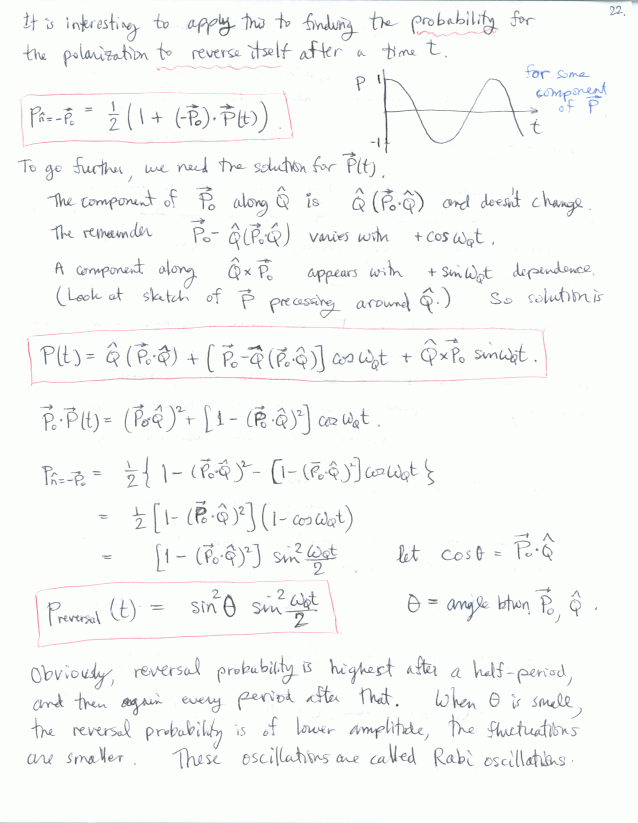 22.
It is interesting to apply this to finding the probability for
the polarization to reverse itself after a time t.
P 1 -1 t
for some
component
of P⃗
P_{n̂=-P⃗₀} = 1/2 (1 + (-P⃗₀)·P⃗(t))
To go further, we need the solution for P⃗(t).
The component of P⃗₀ along Q̂ is Q̂ (P⃗₀·Q̂) and doesn't change.
The remainder P⃗₀ - Q̂(P⃗₀·Q̂) varies with + cos ω_Q t.
A component along Q̂ × P⃗₀ appears with + sin ω_Q t dependence.
(Look at sketch of P⃗ precessing around Q̂.) So solution is
P(t) = Q̂ (P⃗₀·Q̂) + [P⃗₀ - Q̂ (P⃗₀·Q̂)] cos ω_Q t + Q̂ × P⃗₀ sin ω_Q t.
P⃗₀·P⃗(t) = (P⃗₀·Q̂)² + [1 - (P⃗₀·Q̂)²] cos ω_Q t.
P_{n̂=-P⃗₀} = 1/2 { 1 - (P⃗₀·Q̂)² - [1 - (P⃗₀·Q̂)²] cos ω_Q t }
= 1/2 [1 - (P⃗₀·Q̂)²] (1 - cos ω_Q t)
= [1 - (P⃗₀·Q̂)²] sin² ω_Q t/2 let cos θ = P⃗₀·Q̂
P_reversal (t) = sin² θ sin² ω_Q t/2 θ = angle btwn P⃗₀, Q̂.
Obviously, reversal probability is highest after a half-period,
and then again every period after that. When θ is small,
the reversal probability is of lower amplitude, the fluctuations
are smaller. These oscillations are called Rabi oscillations.